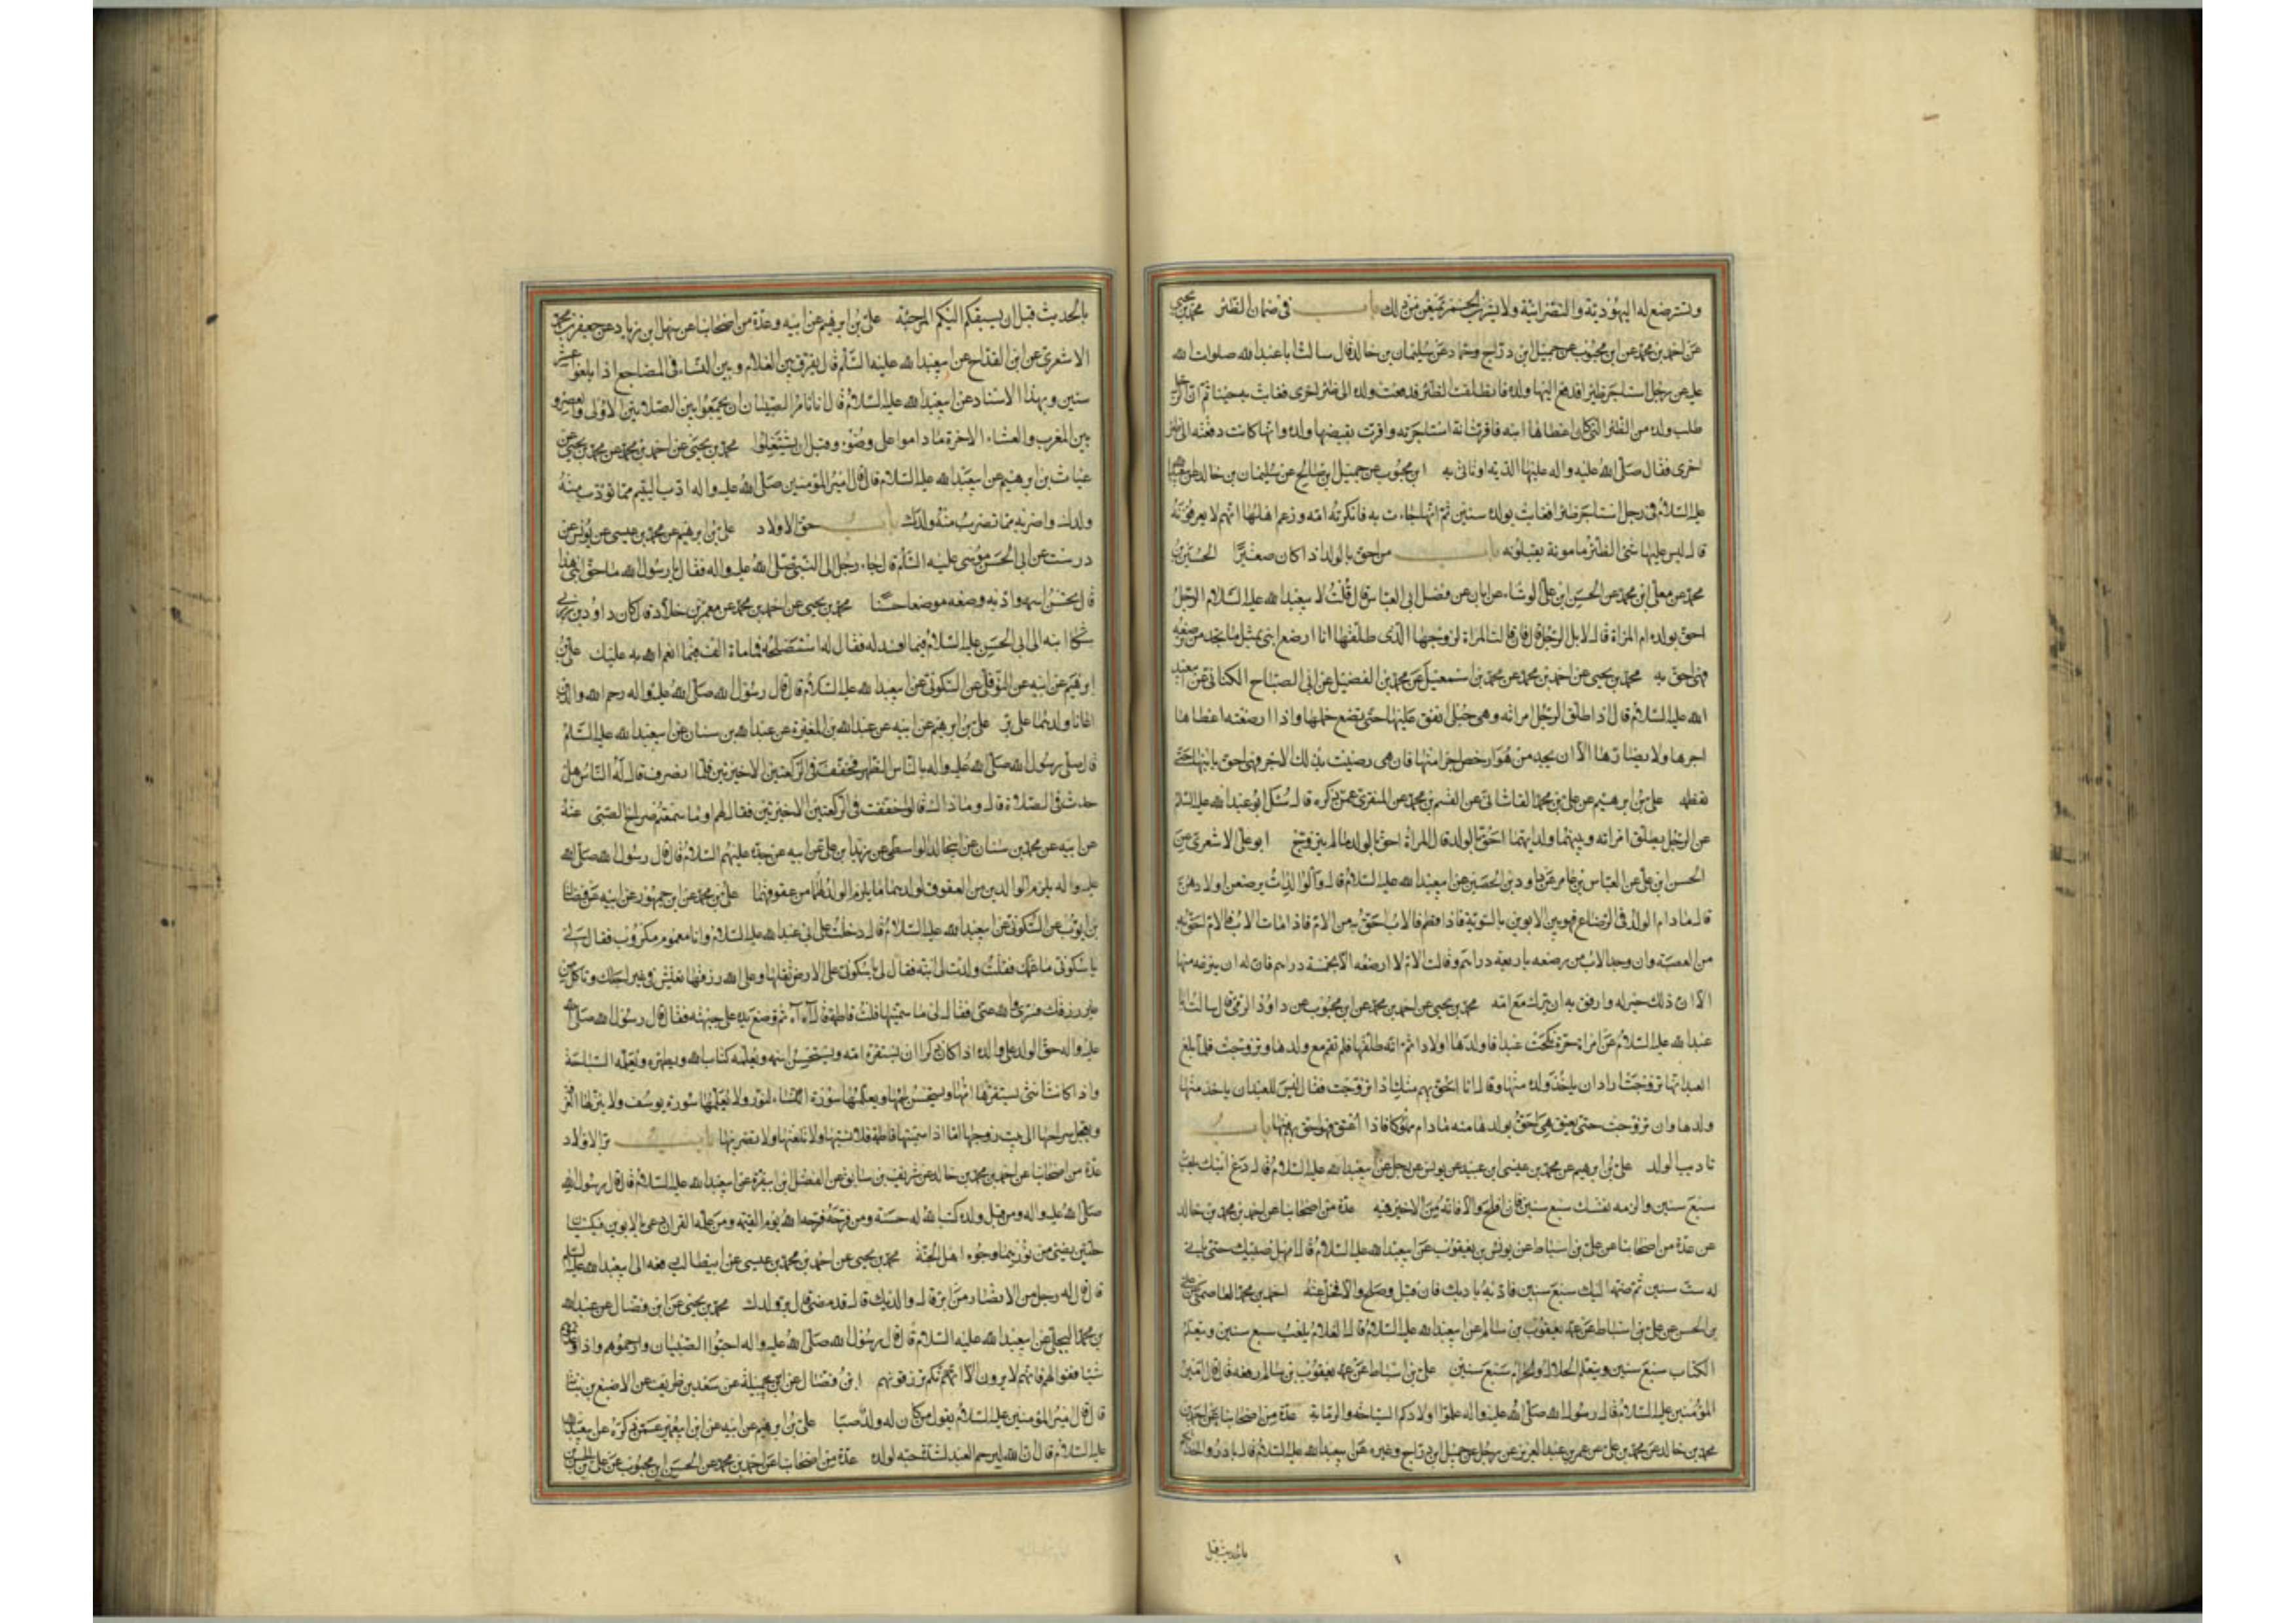 وتسترضع له اليهودية والنصرانية ولا يشربن الخمر تمنعهن من ذلك باب في ضمان الظئر محمد بن يحيى
عن احمد بن محمد عن ابن محبوب عن جميل ابن دراج وحماد عن سليمان بن خالد قال سالت ابا عبد الله صلوات الله
عليه عن رجل استاجر ظئرا فدفع اليها ولده فانطلقت الظئر فدفعت ولده الى ظئر اخرى فغابت به حينا ثم ان الرجل
طلب ولده من الظئر التي كان اعطاها ابنه فاقرت انه استاجرته واقرت بقبضها ولده وانها كانت دفعته الى ظئر
اخرى فقال صلى الله عليه واله عليها الدية او تاتي به ابن محبوب عن جميل ابن صالح عن سليمان بن خالد عن ابيعبد الله
عليه السلام في رجل استاجر ظئرا فغابت بولده سنين ثم انها جاءت به فانكرته امه وزعم اهلها انهم لا يعرفونه
قال ليس عليها شئ الظئر مامونة يقبلونه باب من احق بالولد اذا كان صغيرا الحسين بن
محمد عن معلى ابن محمد عن الحسن ابن علي الوشاء عن ابان عن فضل ابي العباس قال قلت لابيعبد الله عليه السلام الرجل
احق بولده ام المراة قال لا بل الرجل قال فان قالت المراة لزوجها الذي طلقها انا ارضع ابني بمثل ما تجد من ترضعه
فهي احق به محمد بن يحيى عن احمد بن محمد عن محمد بن اسمعيل عن محمد بن الفضيل عن ابي الصباح الكناني عن ابيعبد
الله عليه السلام قال اذا طلق الرجل امراته وهي حبلى انفق عليها حتى تضع حملها واذا ارضعته اعطاها
اجرها ولا يضارها الا ان يجد من هو ارخص اجرا منها فان هي رضيت بذلك الاجر فهي احق بابنها حتى
تفطمه علي بن ابرهيم عن علي بن محمد القاشاني عن القسم بن محمد عن المنقري عمن ذكره قال سئل ابو عبد الله عليه السلام
عن الرجل يطلق امراته وبينهما ولد ايهما احق بالولد قال المراة احق بالولد ما لم يتزوج ابو علي الاشعري عن
الحسن ابن علي عن العباس بن عامر عن داود بن الحصين عن ابيعبد الله عليه السلام قال والوالدات يرضعن اولادهن
قال ما دام الولد في الرضاع فهو بين الابوين بالسوية فاذا فطم فالاب احق به من الام فاذا مات الاب فالام احق به
من العصبة وان وجد الاب من يرضعه باربعة دراهم وقالت الام لا ارضعه الا بخمسة دراهم فان له ان ينزعه منها
الا ان ذلك خير له وارفق به ان يترك مع امه محمد بن يحيى عن احمد بن محمد عن ابن محبوب عن داود الرقي قال سالت ابا
عبد الله عليه السلام عن امراة حرة نكحت عبدا فاولدها اولادا ثم انه طلقها فلم تقم مع ولدها وتزوجت فلما بلغ
العبد انها تزوجت اراد ان ياخذ ولده منها وقال انا احق بهم منك اذا تزوجت فقال ليس للعبد ان ياخذ منها
ولدها وان تزوجت حتى يعتق هي احق بولدها منه ما دام مملوكا فاذا اعتق فهو احق بهم منها باب
تاديب الولد علي بن ابرهيم عن محمد بن عيسى ابن عبيد عن يونس عن رجل عن ابيعبد الله عليه السلام قال دع ابنك يلعب
سبع سنين والزمه نفسك سبع سنين فان افلح والا فانه من لا خير فيه عدة من اصحابنا عن احمد بن محمد بن خالد
عن عدة من اصحابنا عن علي بن اسباط عن يونس بن يعقوب عن ابيعبد الله عليه السلام قال امهل صبيك حتى ياتي
له ست سنين ثم ضمه اليك سبع سنين فادبه بادبك فان قبل وصلح والا فخل عنه احمد بن محمد العاصمي عن علي
بن الحسن عن علي بن اسباط عن عمه يعقوب بن سالم عن ابيعبد الله عليه السلام قال الغلام يلعب سبع سنين ويتعلم
الكتاب سبع سنين ويتعلم الحلال والحرام سبع سنين علي بن اسباط عن عمه يعقوب بن سالم رفعه قال قال امير
المؤمنين عليه السلام قال رسول الله صلى الله عليه واله علموا اولادكم السباحة والرماية عدة من اصحابنا عن احمد بن
محمد بن خالد عن محمد بن علي عن عمر بن عبد العزيز عن رجل عن جميل ابن دراج وغيره عن ابيعبد الله عليه السلام قال بادروا احداثكم
بالحديث قبل
بالحديث قبل ان يسبقكم اليكم المرجئة علي بن ابرهيم عن ابيه وعدة من اصحابنا عن سهل ابن زياد عن جعفر بن محمد
الاشعري عن ابن القداح عن ابيعبد الله عليه السلام قال يفرق بين الغلام وبين النساء في المضاجع اذا بلغوا عشر
سنين وبهذا الاسناد عن ابيعبد الله عليه السلام قال انا نامر الصبيان ان يجمعوا بين الصلاتين الاولى والعصر و
بين المغرب والعشاء الاخرة ما داموا على وضوء وقبل ان يشتغلوا محمد بن يحيى عن احمد بن محمد عن محمد بن يحيى عن
غياث بن ابرهيم عن ابيعبد الله عليه السلام قال قال امير المؤمنين صلى الله عليه واله ادب اليتيم مما تودب منه
ولدك واضربه مما تضرب منه ولدك باب حق الاولاد علي بن ابرهيم عن محمد بن عيسى عن يونس عن
درست عن ابي الحسن موسى عليه السلام قال جاء رجل الى النبي صلى الله عليه واله فقال يا رسول الله ما حق ابني هذا
قال تحسن اسمه وادبه وضعه موضعا حسنا محمد بن يحيى عن احمد بن محمد عن معمر بن خلاد قال كان داود بن زربي
شكا ابنه الى ابي الحسن عليه السلام فيما افسد له فقال له استصلحه فما مائة الف فيما انعم الله به عليك علي بن
ابرهيم عن ابيه عن النوفلي عن السكوني عن ابيعبد الله عليه السلام قال قال رسول الله صلى الله عليه واله رحم الله والدين
اعانا ولدهما على بر علي بن ابرهيم عن ابيه عن عبد الله بن المغيرة عن عبد الله بن سنان عن ابيعبد الله عليه السلام
قال صلى رسول الله صلى الله عليه واله بالناس الظهر فخفف في الركعتين الاخيرتين فلما انصرف قال له الناس هل
حدث في الصلاة قال وما ذاك قالوا خففت في الركعتين الاخيرتين فقال لهم اوما سمعتم صراخ الصبي عنه
عن ابيه عن محمد بن سنان عن ابيخالد الواسطي عن زيد ابن علي عن ابيه عن جده عليهم السلام قال قال رسول الله صلى الله
عليه واله يلزم الوالدين من العقوق لولدهما ما يلزم الولد لهما من عقوقهما علي بن محمد عن ابن جمهور عن ابيه عن فضالة
بن ايوب عن السكوني عن ابيعبد الله عليه السلام قال دخلت على ابي عبد الله عليه السلام وانا مغموم مكروب فقال لي
يا سكوني ما غمك فقلت ولدت لي ابنة فقال لي يا سكوني على الارض ثقلها وعلى الله رزقها تعيش في غير اجلك وتاكل من
غير رزقك فسرى والله عني فقال لي ما سميتها قلت فاطمة قال آه آه ثم وضع يده على جبهته فقال قال رسول الله صلى الله
عليه واله حق الولد على والده اذا كان ذكرا ان يستفره امه ويستحسن اسمه ويعلمه كتاب الله ويطهره ويعلمه السباحة
واذا كانت انثى يستفره امها ويستحسن اسمها ويعلمها سورة النور ولا يعلمها سورة يوسف ولا ينزلها الغرف
ويعجل سراحها الى بيت زوجها اما اذا سميتها فاطمة فلا تسبها ولا تلعنها ولا تضربها باب بر الاولاد
عدة من اصحابنا عن احمد بن محمد بن خالد عن شريف بن سابق عن الفضل ابن ابيقرة عن ابيعبد الله عليه السلام قال قال رسول الله
صلى الله عليه واله ومن قبل ولده كتب الله له حسنة ومن فرحه فرحه الله يوم القيمة ومن علمه القران دعي بالابوين فيكسيان
حلتين يضئ من نورهما وجوه اهل الجنة محمد بن يحيى عن احمد بن محمد بن عيسى عن ابيطالب رفعه الى ابيعبد الله عليه السلام
قال قال له رجل من الانصار من ابر قال والديك قال قد مضيا قال بر ولدك محمد بن يحيى عن ابن فضال عن عبد الله
بن محمد البجلي عن ابيعبد الله عليه السلام قال قال رسول الله صلى الله عليه واله احبوا الصبيان وارحموهم واذا وعدتموهم
شيئا ففوا لهم فانهم لا يرون الا انكم ترزقونهم ابن فضال عن ابي جميلة عن سعد بن ظريف عن الاصبغ بن نباتة
قال قال امير المؤمنين عليه السلام يقول من كان له ولد صبا علي بن ابرهيم عن ابيه عن ابن ابيعمير عمن ذكره عن ابيعبد الله
عليه السلام قال ان الله ليرحم العبد لشدة حبه لولده عدة من اصحابنا عن احمد بن محمد عن الحسن ابن محبوب عن علي بن الحسن بن